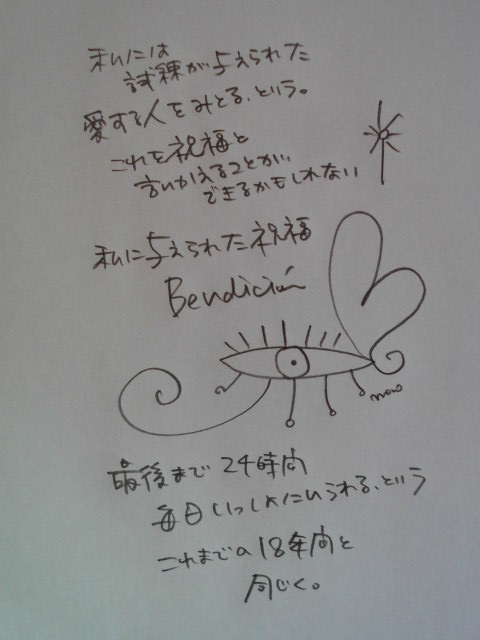 私には
試練が与えられた
愛する人をみとる、という。
これを祝福と
言いかえることが、
できるかもしれない
私に与えられた祝福
Bendición
now
最後まで 24時間
毎日いっしょにいられる、という
これまでの18年間と
同じく。